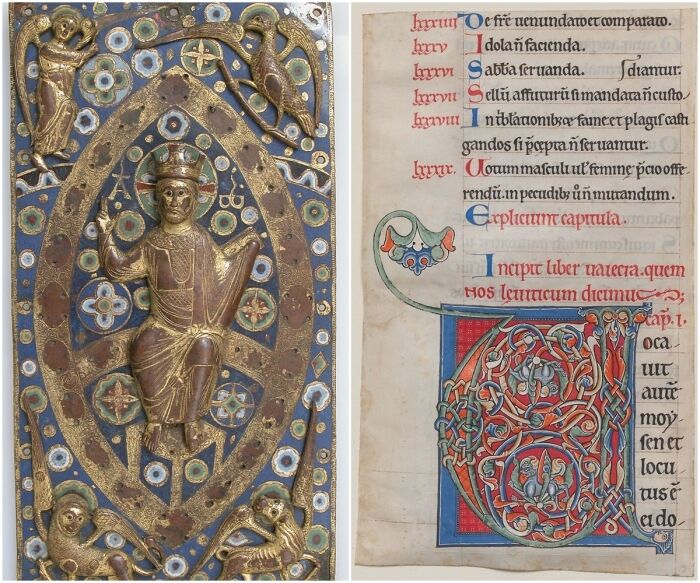 A B
lxxxiiii De fr̄e uenundato et comparato.
lxxxv Idola n̄ facienda.
lxxxvi Sabb̄a seruanda.
lxxxvii Sellū affuturū si mandata n̄ custo
ʃdiantur.
lxxxviii In t̄blationibus fame et plagis casti
gandos si p̄cepta n̄ seruantur.
lxxxix. Uotum masculi ul' femine p̄cio offe
rendū. in pecudib; ū n̄ mutandum.
Expliciunt capitula.
Incipit liber uaiecra. quem
nos leuiticum dicimus;
cap̄. i.
V oca
uit
autē
moy
sen et
locu
tus ē
ei do